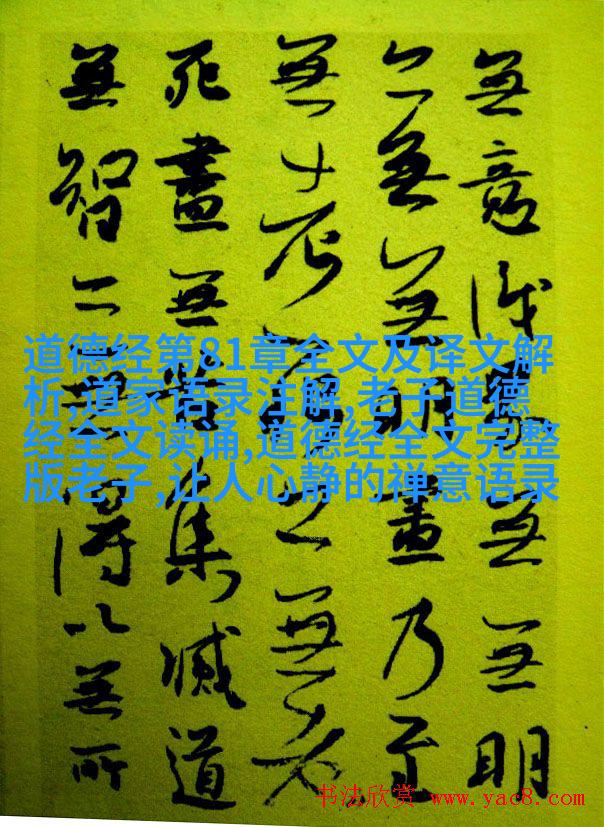 無意識界無無明
亦無無明盡乃至
無老死亦無老
死盡無苦集滅道
無智亦無得以無所
道德经第81章全文及译文解
析,道家语录注解,老子道德
经全文读诵,道德经全文完整
版老子,让人心静的禅意语录
书法欣赏 www.yac8.com